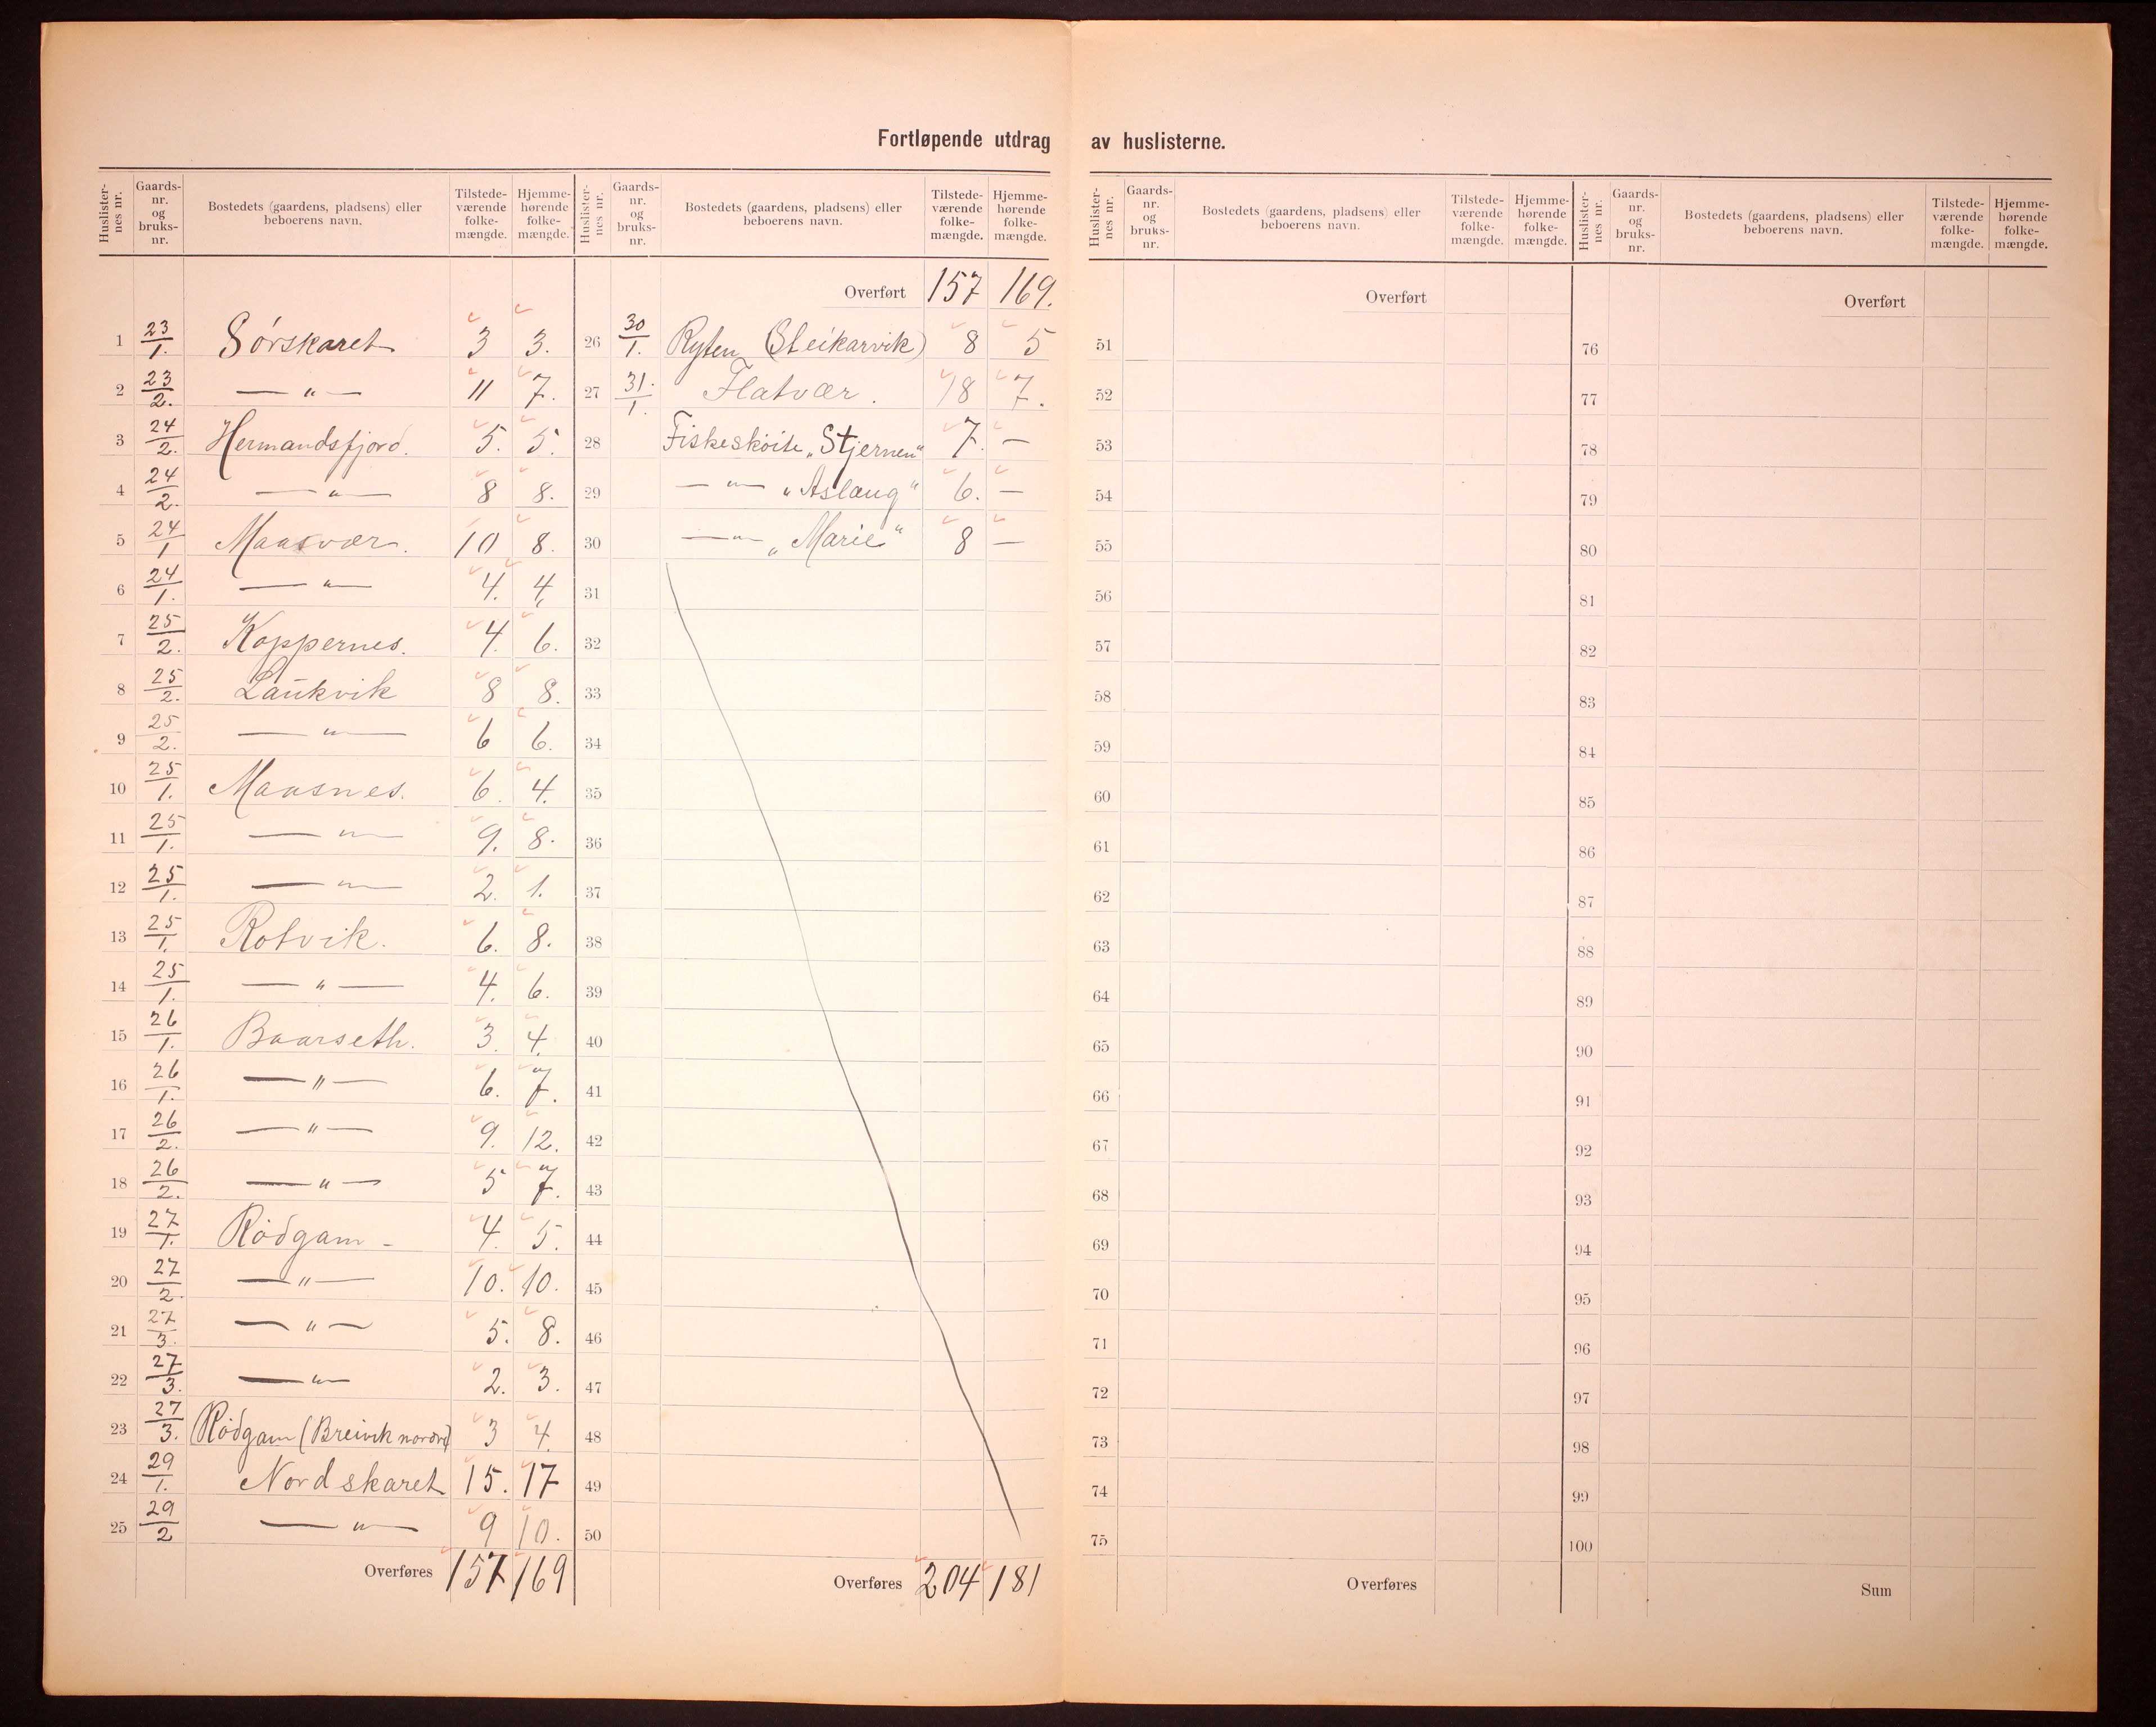 Fortløpende utdrag av huslisterne.
Huslisternes nr. Gaardsnr. og bruksnr. Bostedets (gaardens, pladsens) eller beboerens navn. Tilstedeværende folkemængde. Hjemmehørende folkemængde.
1 23/1. Sørskaret 3 3.
2 23/2. — " — 11 7.
3 24/2. Hermandsfjord. 5. 5.
4 24/2. — " — 8 8.
5 24/1 Maasvær. 10 8.
6 24/1. — " — 4. 4.
7 25/2. Koppernes. 4. 6.
8 25/2. Laukvik 8 8.
9 25/2. — " — 6 6.
10 25/1. Maasnes. 6. 4.
11 25/1. — " — 9. 8.
12 25/1. — " — 2. 1.
13 25/1. Rotvik. 6. 8.
14 25/1. — " — 4. 6.
15 26/1. Baarseth. 3. 4.
16 26/1. — " — 6. 7.
17 26/2. — " — 9. 12.
18 26/2. — " — 5 7.
19 27/1. Rødgam - 4. 5.
20 27/2. — " — 10. 10.
21 27/3. — " — 5. 8.
22 27/3. — " — 2. 3.
23 27/3. Rødgam (Breivik nordre) 3 4.
24 29/1. Nordskaret 15. 17
25 29/2 — " — 9 10.
Overføres 157 169
Huslisternes nr. Gaardsnr. og bruksnr. Bostedets (gaardens, pladsens) eller beboerens navn. Tilstedeværende folkemængde. Hjemmehørende folkemængde.
Overført 157 169.
26 30/1. Ryten (Steikarvik) 8 5
27 31./1. Flatvær. 18 7.
28 Fiskeskøite „Stjernen" 7. —
29 — " — „Aslaug" 6. —
30 — " — „Marie" 8 —
31
32
33
34
35
36
37
38
39
40
41
42
43
44
45
46
47
48
49
50
Overføres 204 181
Huslisternes nr. Gaardsnr. og bruksnr. Bostedets (gaardens, pladsens) eller beboerens navn. Tilstedeværende folkemængde. Hjemmehørende folkemængde.
Overført
51
52
53
54
55
56
57
58
59
60
61
62
63
64
65
66
67
68
69
70
71
72
73
74
75
Overføres
Huslisternes nr. Gaardsnr. og bruksnr. Bostedets (gaardens, pladsens) eller beboerens navn. Tilstedeværende folkemængde. Hjemmehørende folkemængde.
Overført
76
77
78
79
80
81
82
83
84
85
86
87
88
89
90
91
92
93
94
95
96
97
98
99
100
Sum